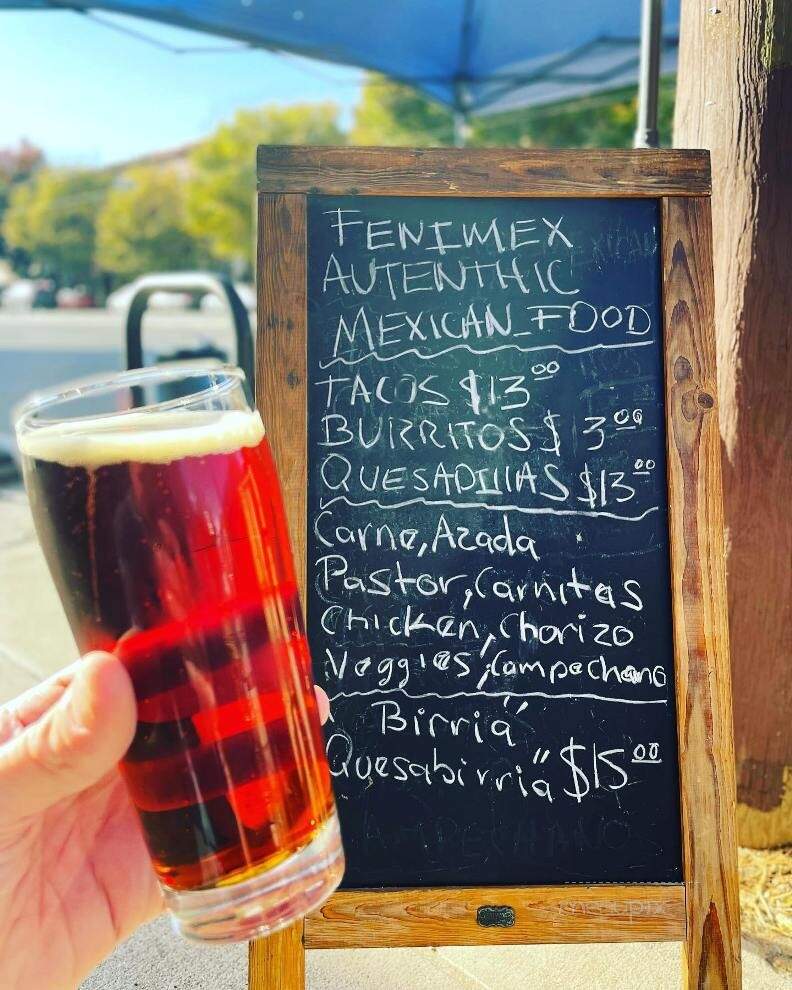 FENIMEX
AUTENTHIC
MEXICAN FOOD
TACOS $13⁰⁰
BURRITOS $ 3⁰⁰
QUESADILLAS $13⁰⁰
Carne, Azada
Pastor, Carnitas
Chicken, Chorizo
Veggies, Campechano
Birria
Quesabirria" $15⁰⁰
AMPECHANOS